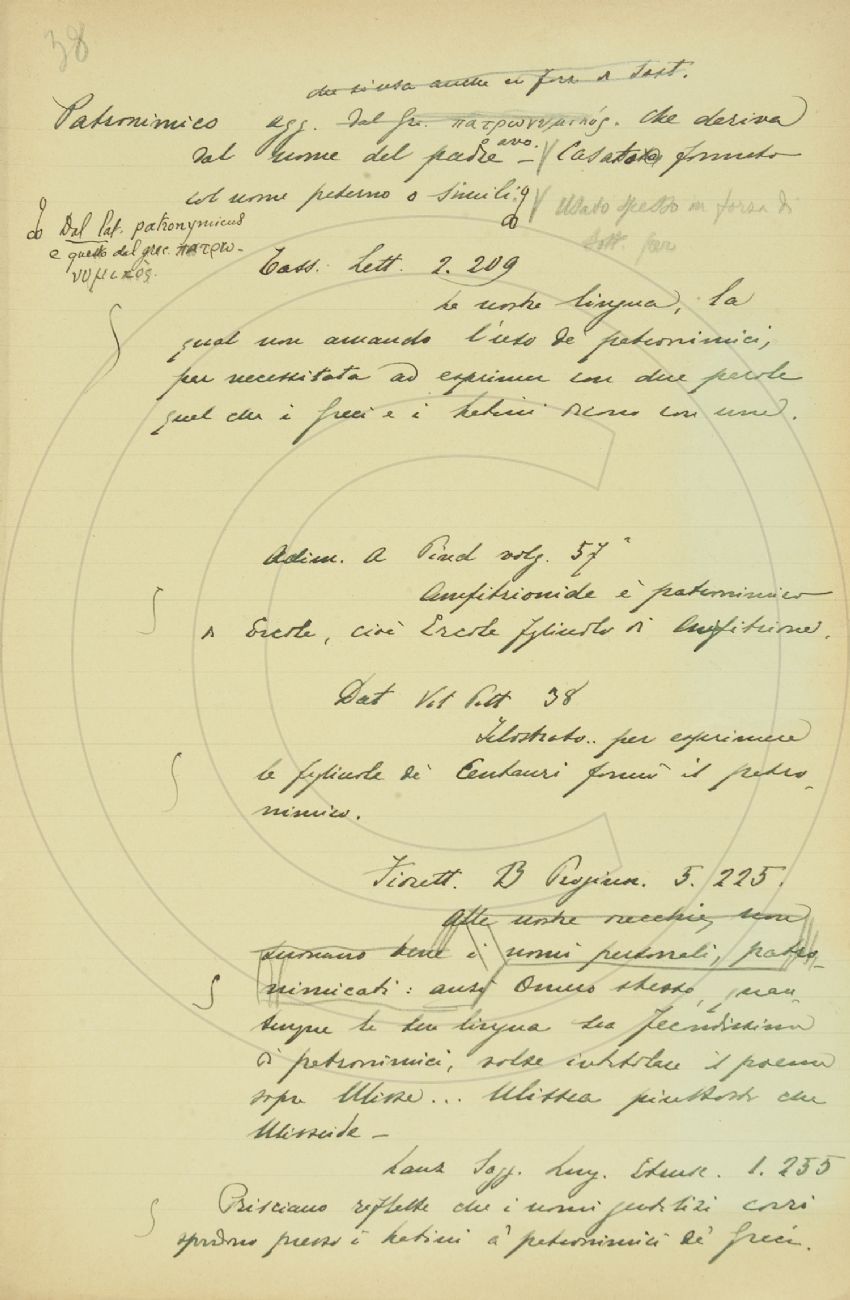 38
che si usa anche in forza di Sost.
Patronimico agg. dal gr. πατρωνυμικός. che deriva
dal nome del padre o avo. – Casato formato
col nome paterno o simili:
Usato spesso in forza di
Sost.
Dal lat. patronymicus
e questo dal grec. πατρω-
νυμικὸς.
Tass. Lett. 2. 209
La nostra lingua, la
qual non amando l'uso de' patronimici,
per necessitata ad esprimer con due parole
quel che i Greci e i Latini dicono con una.
Adim. A Pind volg. 57
Anfitrionide è patronimico
di Ercole, cioè Ercole figliuolo di Anfitrione.
Dat Vit Pitt 38
Filostrato.. per esprimere
le figliuole de' Centauri formò il patro-
nimico.
Fiorett. B Proginn. 5. 225.
Alle nostre orecchie, non
suonano bene i nomi personali, patro-
nimicati: anzi Omero stesso, quan-
tunque la sua lingua sia fecondissima
di patronimici, volse intitolare il poema
sopra Ulisse... Ulissea piuttosto che
Ulisseide –
Lanz Sagg. Ling. Etrusc. 1. 255
Prisciano reflette che i nomi gentilizi corri
spondono presso i Latini a' patronimici de' Greci.